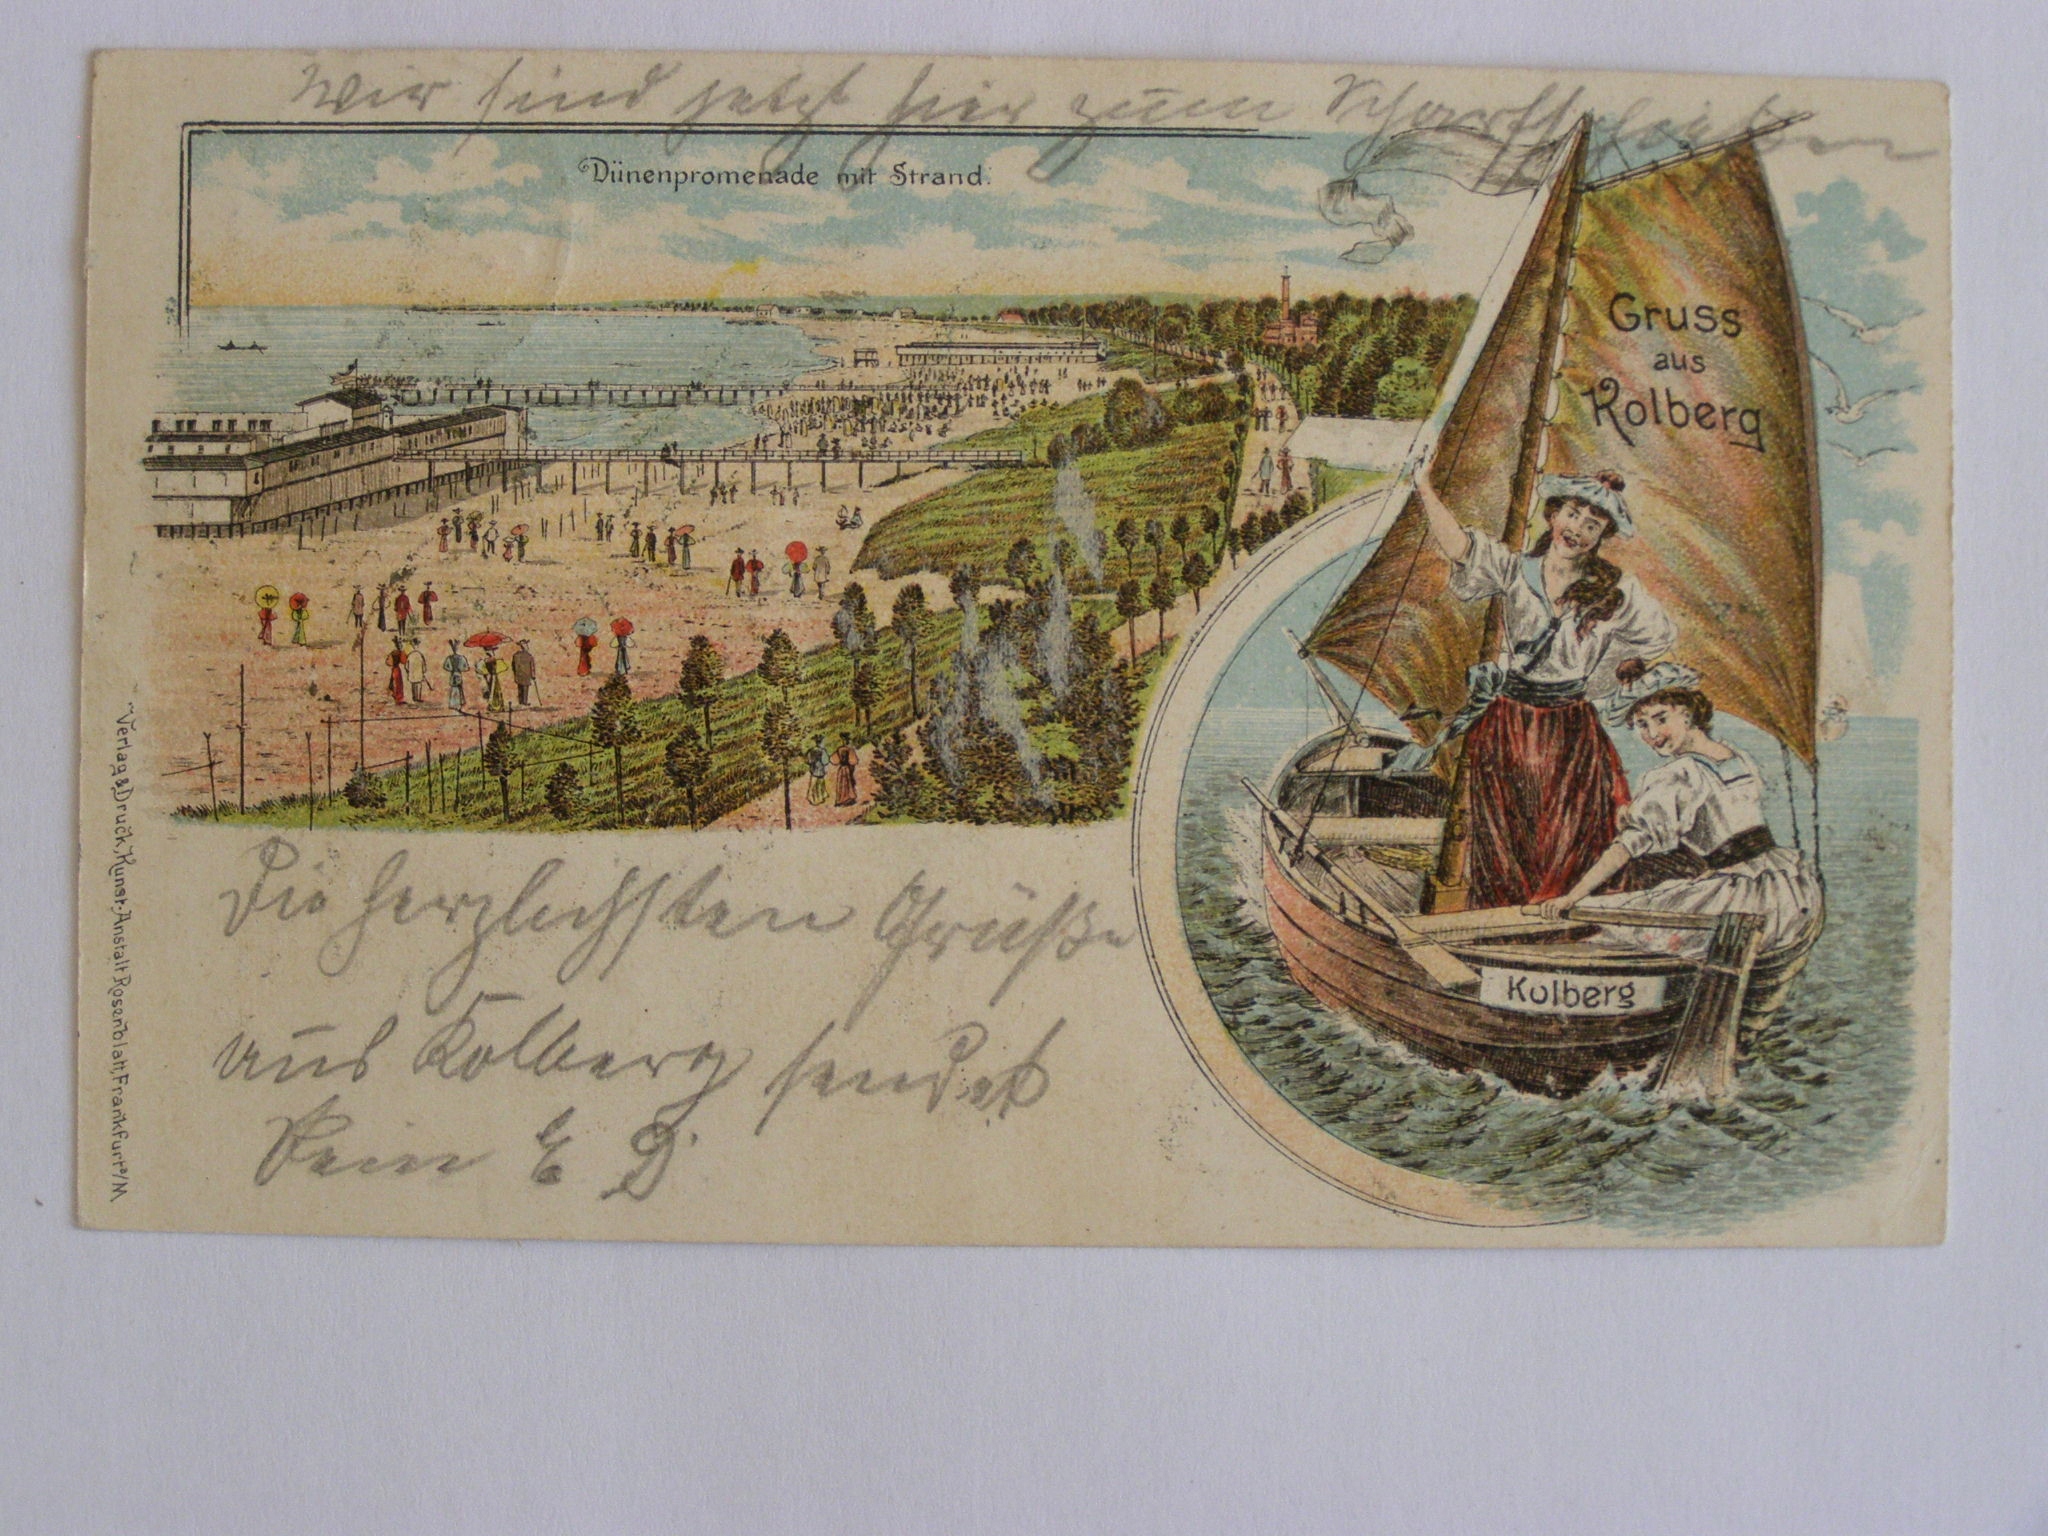 Wir sind jetzt hier zum Scharfschießen
Dünenpromenade mit Strand.
Gruss
aus
Kolberg
Kolberg
Die herzlichsten Grüße
aus Kolberg sendet
Dein E D.
Verlag & Druck, Kunst-Anstalt Rosenblatt, Frankfurt a/M